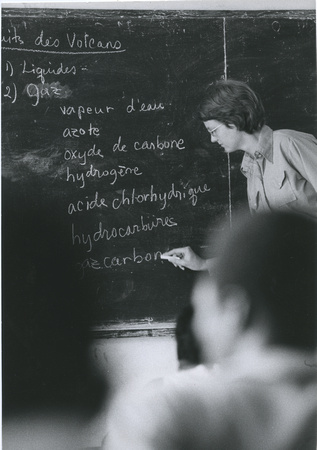 uits des Volcans
1) Liquides-
2) Gaz
vapeur d'eau
azote
oxyde de carbone
hydrogène
acide chlorhydrique
hydrocarbures
az carbon